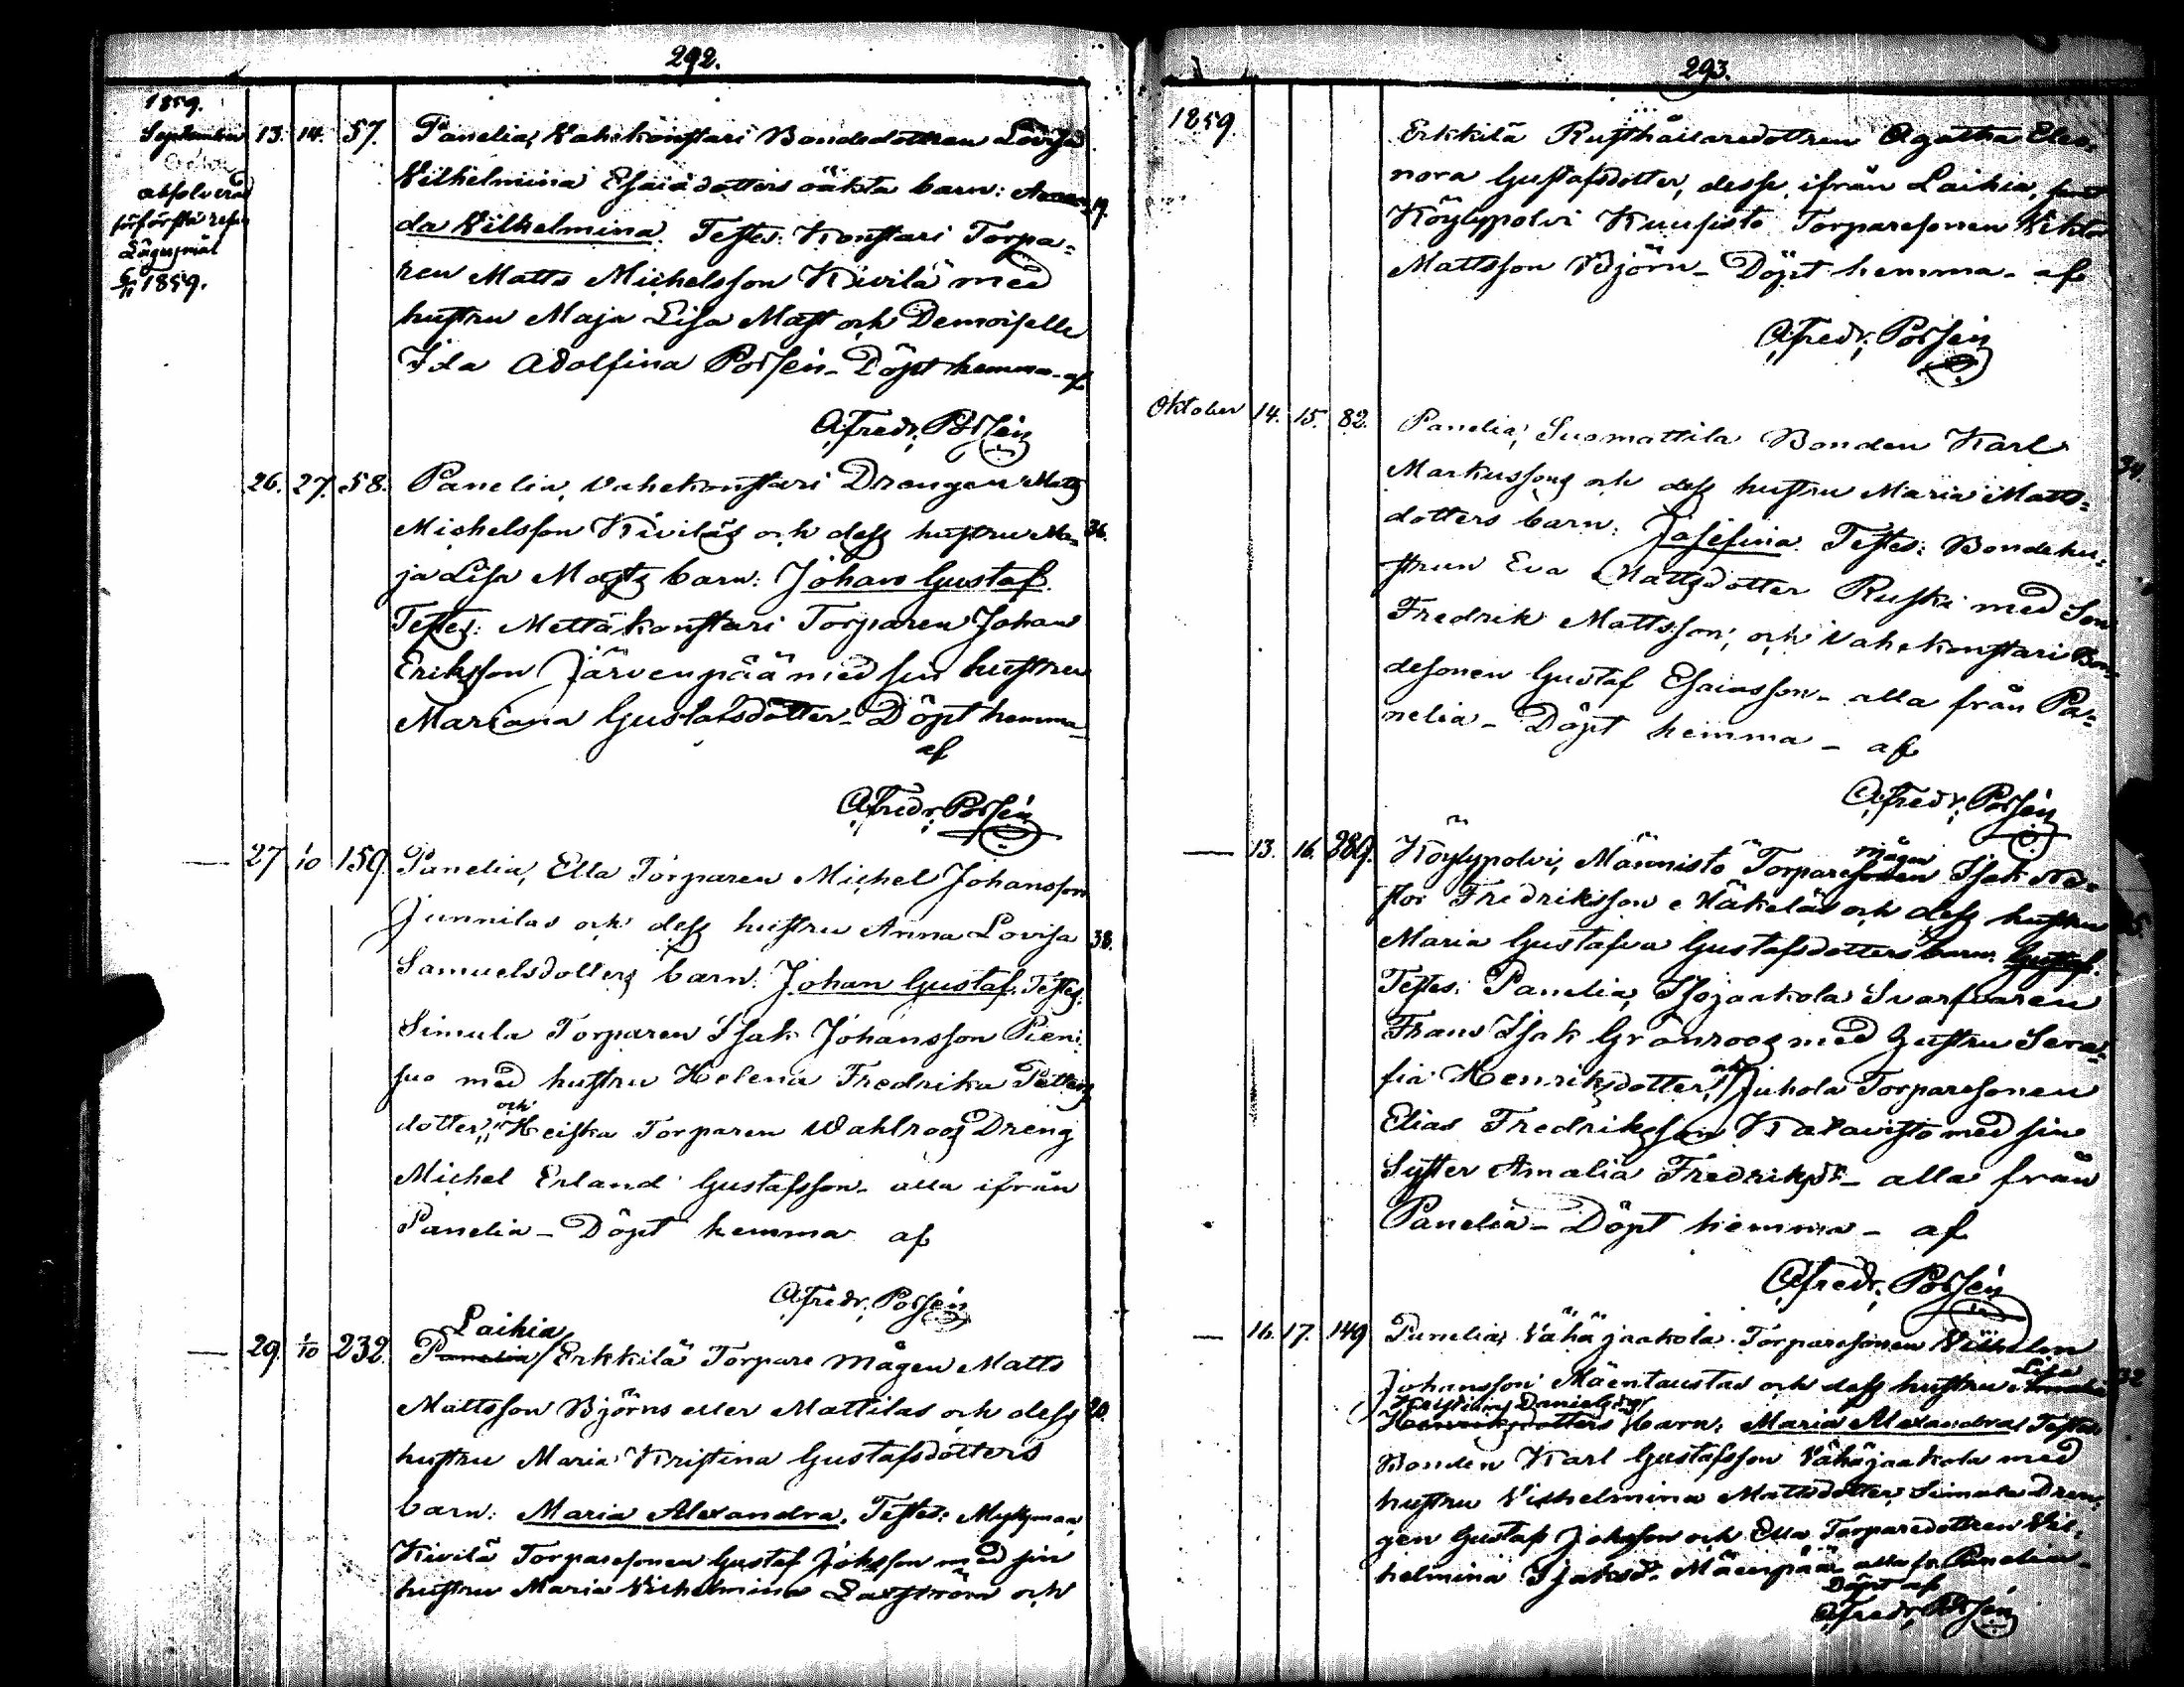 292.
1859.
September 13. 14. 57. Panelia, Vahekonstari Bondedottren Lovisa
absolverad
Lägersmål
1859.
Vilhelmina Esaiadotters oäkta barn: Aman- 19.
da Vilhelmina. Testes: Konstari Torpa-
ren Matts Michelsson Kivilä med
hustru Maja Lisa Matts och Demoiselle
Ida Adolfina Polsén - Döpt hemma - af
A. Fredr. Polsén
26. 27. 58. Panelia, Vahekonstari Drengen Matts
Michelsson Kiviläs och dess hustru Ma- 36.
ja Lisa Matts barn: Johan Gustaf.
Testes: Mettäkonstari Torparen Johan
Eriksson Järvenpää med sin hustru
Mariana Gustafsdotter - Döpt hemma -
af
A. Fredr. Polsén
— 27 1/10 159. Panelia, Ella Torparen Michel Johansson
Junnilas och dess hustru Anna Lovisa 38.
Samuelsdotters barn: Johan Gustaf. Testes:
Simula Torparen Isak Johansson Pieni-
suo med hustru Helena Fredrika Petters
dotter, och Heiska Torparen Wahlroos Dreng
Michel Erland Gustafsson - alla ifrån
Panelia - Döpt hemma af
A. Fredr. Polsén
Laihia
— 29. 1/10 232. Panelia, Erkkilä Torpare mågen Matts
Mattsson Björns eller Mattilas och dess 20.
hustru Maria Kristina Gustafsdotters
barn: Maria Alexandra. Testes: Myllymaa,
Kivilä Torparesonen Gustaf Johsson med sin
hustru Maria Vilhelmina Laxström och
293.
1859. Erkkilä Rusthållaredottren Agatha Eleo-
nora Gustafsdotter, desse ifrån Laihia, samt
Köylypolvi Kuusisto Torparesonen Viktor
Mattsson Björn - Döpt hemma - af
A. Fredr. Polsén
Oktober 14. 15. 82. Panelia, Suomattila Bonden Karl
Markussons och dess hustru Maria Matts- 34.
dotters barn: Josefina. Testes: Bondehu-
strun Eva Mattsdotter Ruski med Son
Fredrik Mattsson, och Vahekonstari Bon-
desonen Gustaf Esaiasson - alla från Pa-
nelia - Döpt hemma - af
A. Fredr. Polsén
— 13. 16. 289. Köylypolvi, Männistö Torparesonen mågen Isak Ne-
stor Fredriksson Häkeläs och dess hustru 25.
Maria Gustafva Gustafsdotters barn: Gustaf.
Testes: Panelia, Isojaakola Svarfvaren
Frans Isak Grönroos med hustru Sera-
fia Henriksdotter, och Juhola Torparesonen
Elias Fredriksson Katavisto med sin
Syster Amalia Fredriksdr - alla från
Panelia - Döpt hemma - af
A. Fredr. Polsén
— 16. 17. 149 Panelia, Vähäjaakola Torparesonen Vilhelm
Johansson Mäentaustas och dess hustru Amalia Lisa 32
Kristina Danielsdrs
Henriksdotters barn: Maria Alexandra. Testes:
Bonden Karl Gustafsson Vähäjaakola med
hustru Vilhelmina Mattsdotter, Simula Dren-
gen Gustaf Johsson och Ella Torparedottren Vil-
helmina Isaksdr Mäenpää alla fr. Panelia -
Döpt af
A. Fredr. Polsén